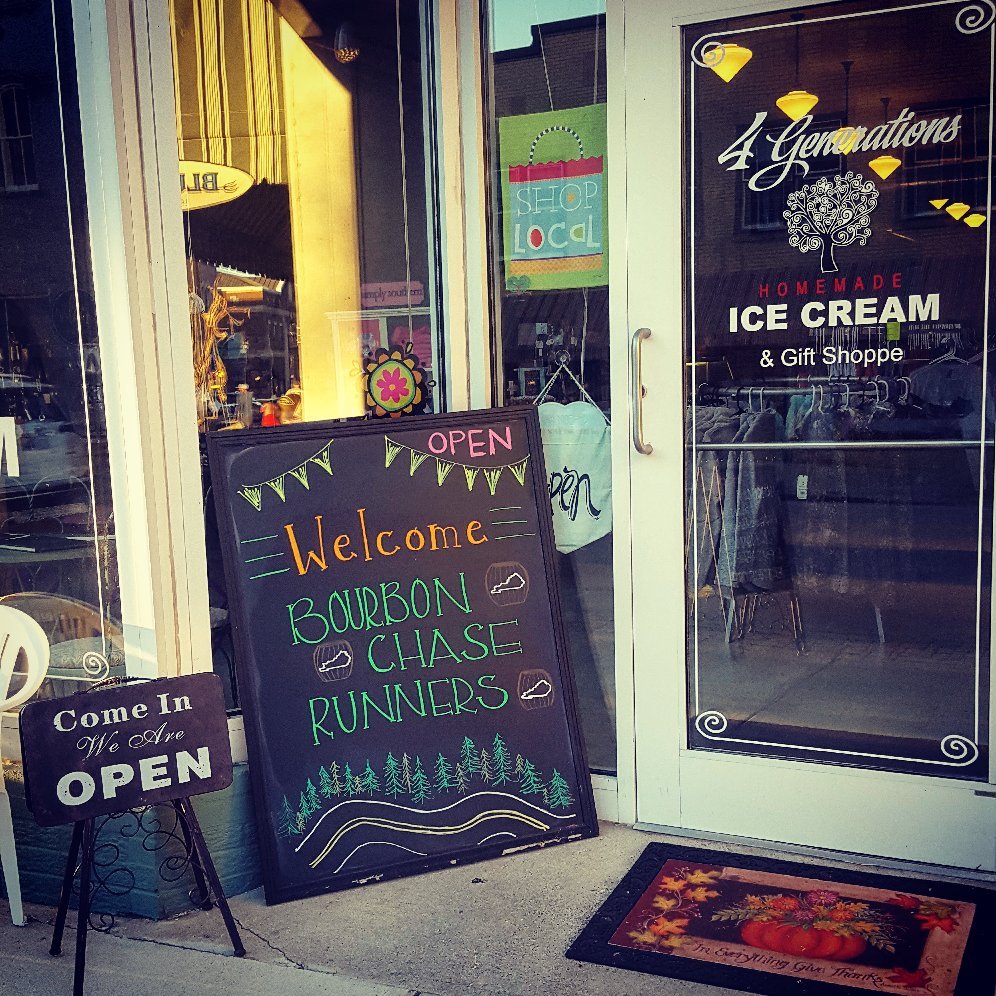 BLU
SHOP
LOCAL
simply southern
4 Generations
HOMEMADE
ICE CREAM
& Gift Shoppe
OPEN
Welcome
BOURBON
CHASE
RUNNERS
open
M
Come In
We Are
OPEN
In Everything Give Thanks